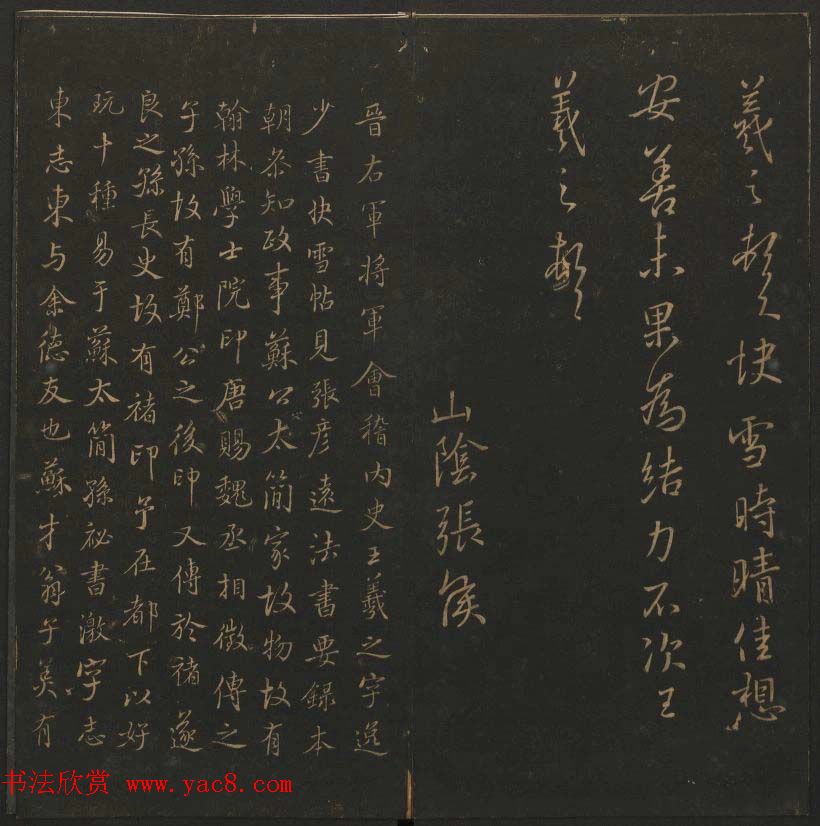 羲之頓首快雪時晴佳想
安善未果為結力不次王
羲之頓首
山陰張侯
晉右軍將軍會稽內史王羲之字逸
少書快雪帖見張彥遠法書要錄本
朝叅知政事蘇公太簡家故物故有
翰林學士院印唐賜魏丞相徵傳之
子孫故有鄭公之後印又傳於褚遂
良之孫長史故有褚印予在都下以好
玩十種易于蘇太簡孫祕書激字志
東志東与余德友也蘇才翁子美有
书法欣赏 www.yac8.com